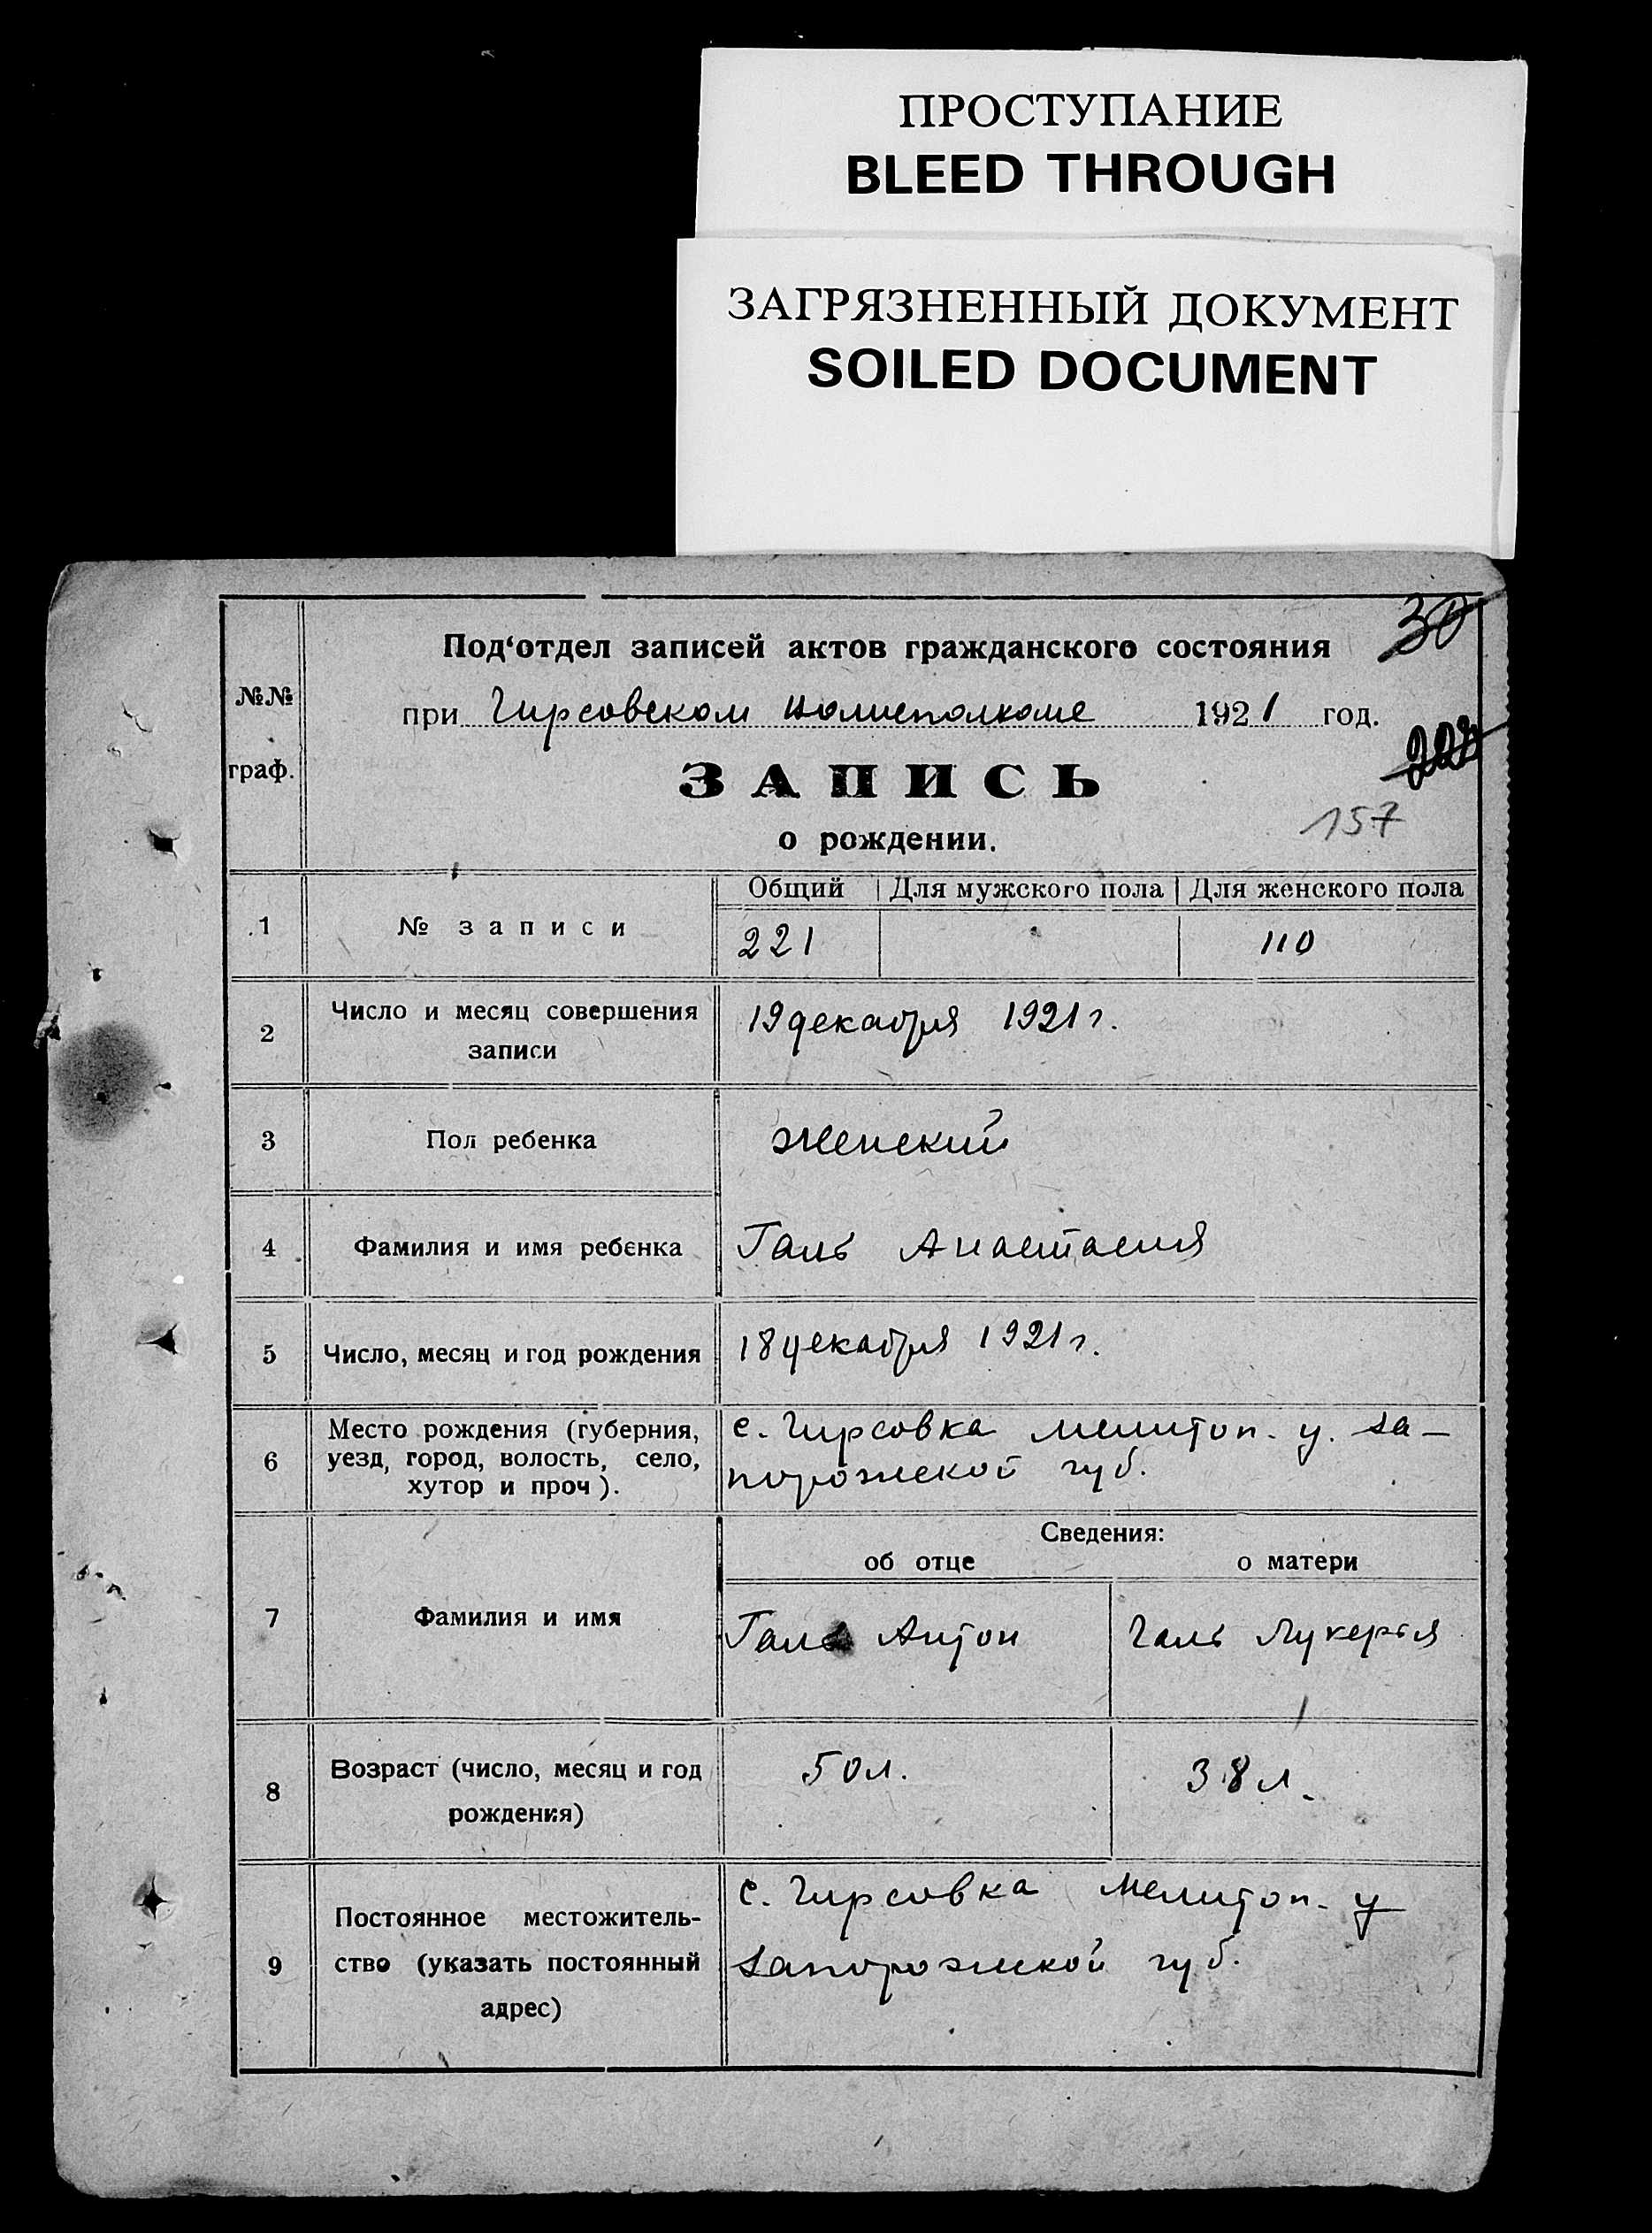 ПРОСТУПАНИЕ
BLEED THROUGH
ЗАГРЯЗНЕННЫЙ ДОКУМЕНТ
SOILED DOCUMENT
30
Под‘отдел записей актов гражданского состояния
№№
граф.
при Гирсовском волисполкоме 1921 год.
ЗАПИСЬ
157
о рождении.
Общий Для мужского пола Для женского пола
1 № записи 221 110
2 Число и месяц совершения
записи
19 декабря 1921 г.
3 Пол ребенка женский
4 Фамилия и имя ребенка Галь Анастасия
5 Число, месяц и год рождения 18 декабря 1921 г.
6 Место рождения (губерния,
уезд, город, волость, село,
хутор и проч).
с. Гирсовка мелитоп. у. за-
порожской губ.
Сведения:
об отце о матери
7 Фамилия и имя Галь Антон Галь Лукерья
8 Возраст (число, месяц и год
рождения)
50 л. 38 л.
9 Постоянное местожитель-
ство (указать постоянный
адрес)
с. Гирсовка Мелитоп. у
запорожской губ.